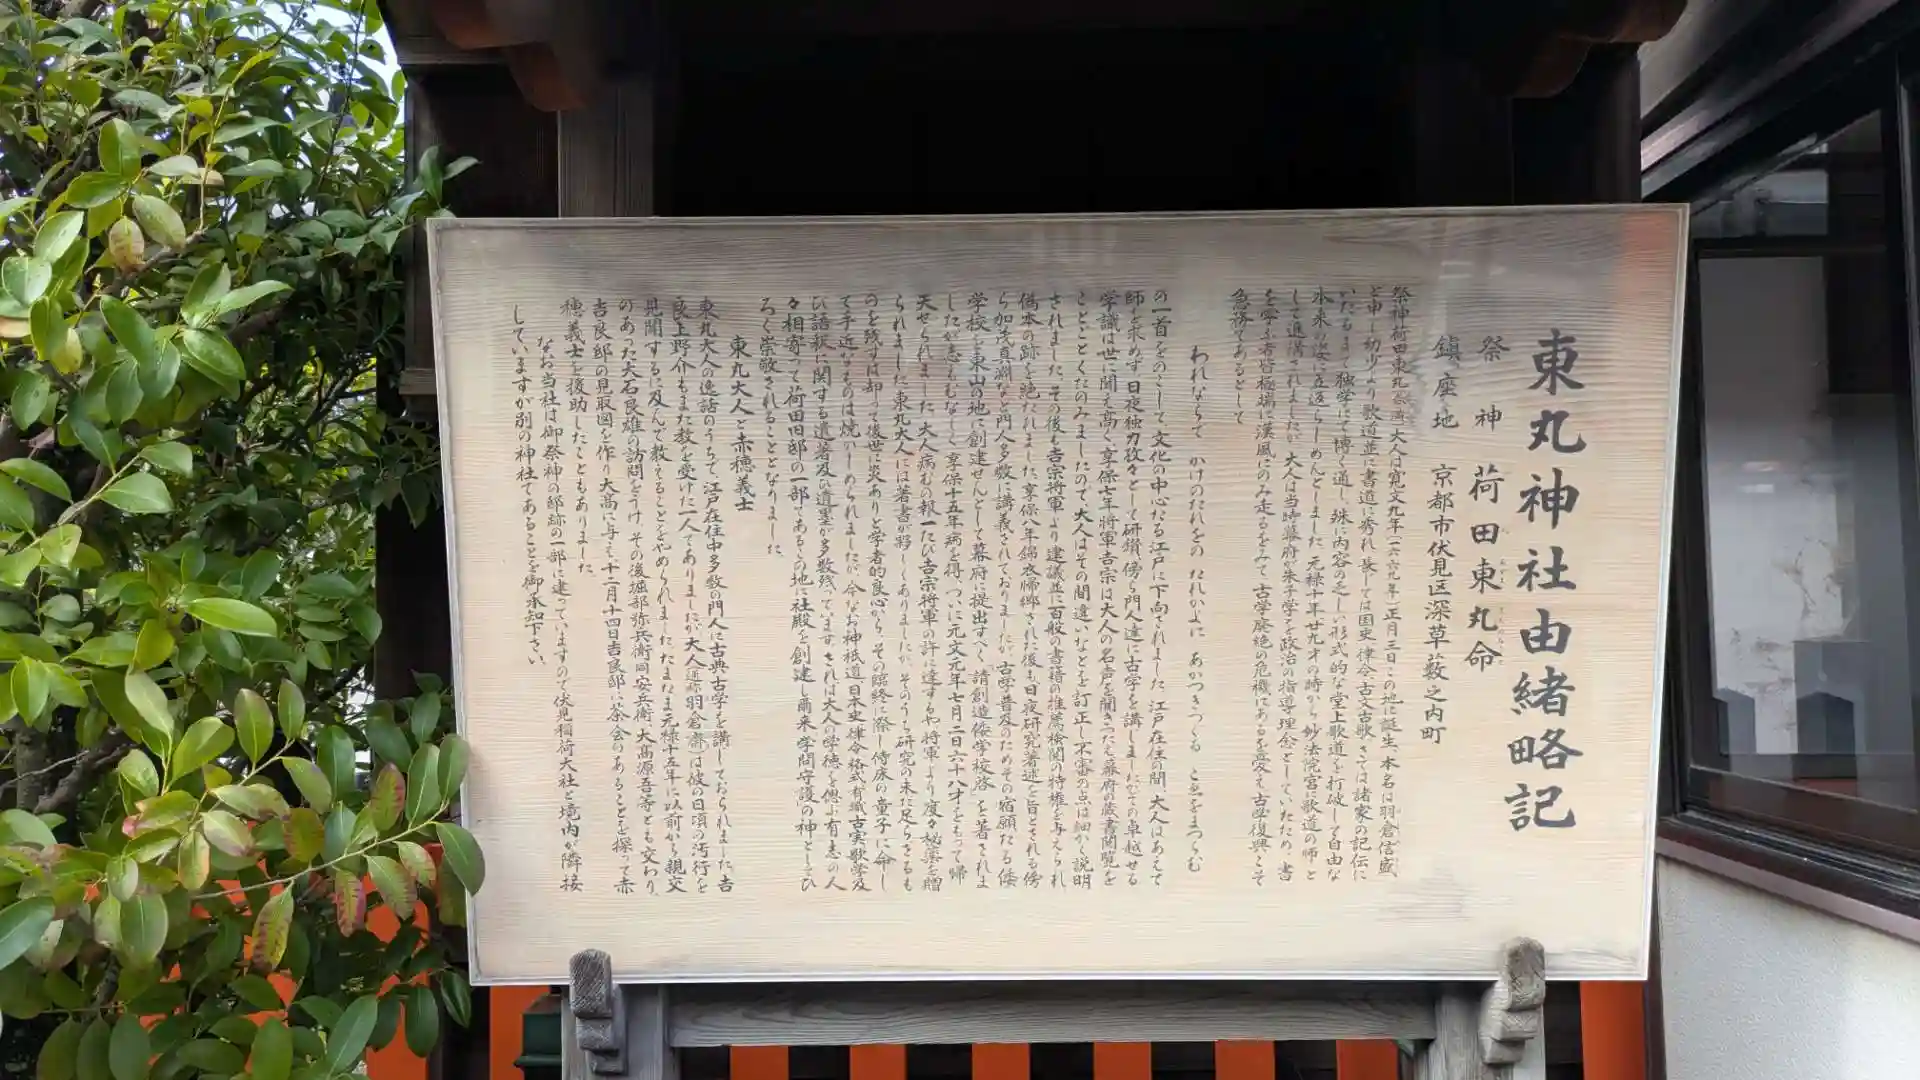 東丸神社由緒略記
祭神 荷田東丸命
鎮座地 京都市伏見区深草薮之内町
祭神荷田東丸大人は寛文九年(一六六九年)正月三日この地に誕生、本名は羽倉信盛、
と申し幼少より歌道並に書道に秀れ長じては国史、律令、古文古歌、さては諸家の記伝に
いたるまで独学にて博く通じ、殊に内容の乏しい形式的な堂上歌道を打破して自由な
本来の姿に立返らしめんとしました、元禄十年廿九才の時から妙法院宮に歌道の師と
して進講されましたが、大人は当時幕府が朱子学を政治の指導理念としていたため、書
を学ぶ者皆極端に漢風にのみ走るをみて、古学廃絶の危機にあるを憂え古学復興こそ
急務であるとして
われならで かけのたれをの たれかよに あかつきつくる こゑをまつらむ
の一首をのこして、文化の中心たる江戸に下向されました、江戸在住の間、大人はあえて
師を求めず、日夜独力孜々として研鑽、傍ら門人達に古学を講じましたがその卓越せる
学識は世に聞え高く、享保七年将軍吉宗は大人の名声を聞き、つたえ幕府の蔵書閲覧を
ことごとくたのみましたので、大人はその間違いなどを訂正し不審の点は細かく説明
されました、その後も吉宗将軍より建議並に百般の書籍の推薦検閲の特権を与えられ
偽本の跡を絶たれました、享保八年錦衣帰郷された後も、日夜研究著述を旨とされる傍
ら加茂真淵など門人多数に講義されておりましたが、古学普及のためその宿願たる倭
学校を東山の地に創建せんとして幕府に提出すべく「請創造倭学校啓」を著されま
したが、志もむなしく、享保十五年病を得、ついに元文元年七月二日六十八才をもって帰
天せられました、大人病むの報一たび吉宗将軍の許に達するや将軍より度々秘薬を贈
られました、東丸大人には著書が夥しくありましたが、そのうち研究の未だ足らざるも
のを残すは却って後世に災ありと学者的良心から、その臨終に際し侍床の童子に命じ
て手近なものは焼かしめられましたが、今なお神祇道、日本史、律令格式、有職古実、歌学及
び語釈に関する遺著及び遺墨が多数残っています、されば大人の学徳を偲ぶ有志の人
々相寄って荷田邸の一部であるこの地に社殿を創建し爾来、学問守護の神としてひ
ろく崇敬されることとなりました
東丸大人と赤穂義士
東丸大人の逸話のうちで江戸在住中多数の門人に古典、古学を講じておられました、吉
良上野介もまた教を受けた一人でありましたが、大人(通称羽倉斎)は彼の日頃の汚行を
見聞するに及んで教えることをやめられました、たまたま元禄十五年に以前から親交
のあった大石良雄の訪問をうけ、その後堀部弥兵衛、同安兵衛、大高源吾等とも交わり、
吉良邸の見取図を作り大高に与え、十二月十四日吉良邸に茶会のあることを探って赤
穂義士を後助したこともありました
なお当社は御祭神の邸跡の一部に建っていますので伏見稲荷大社と境内が隣接
していますが別の神社であることを御承知下さい、